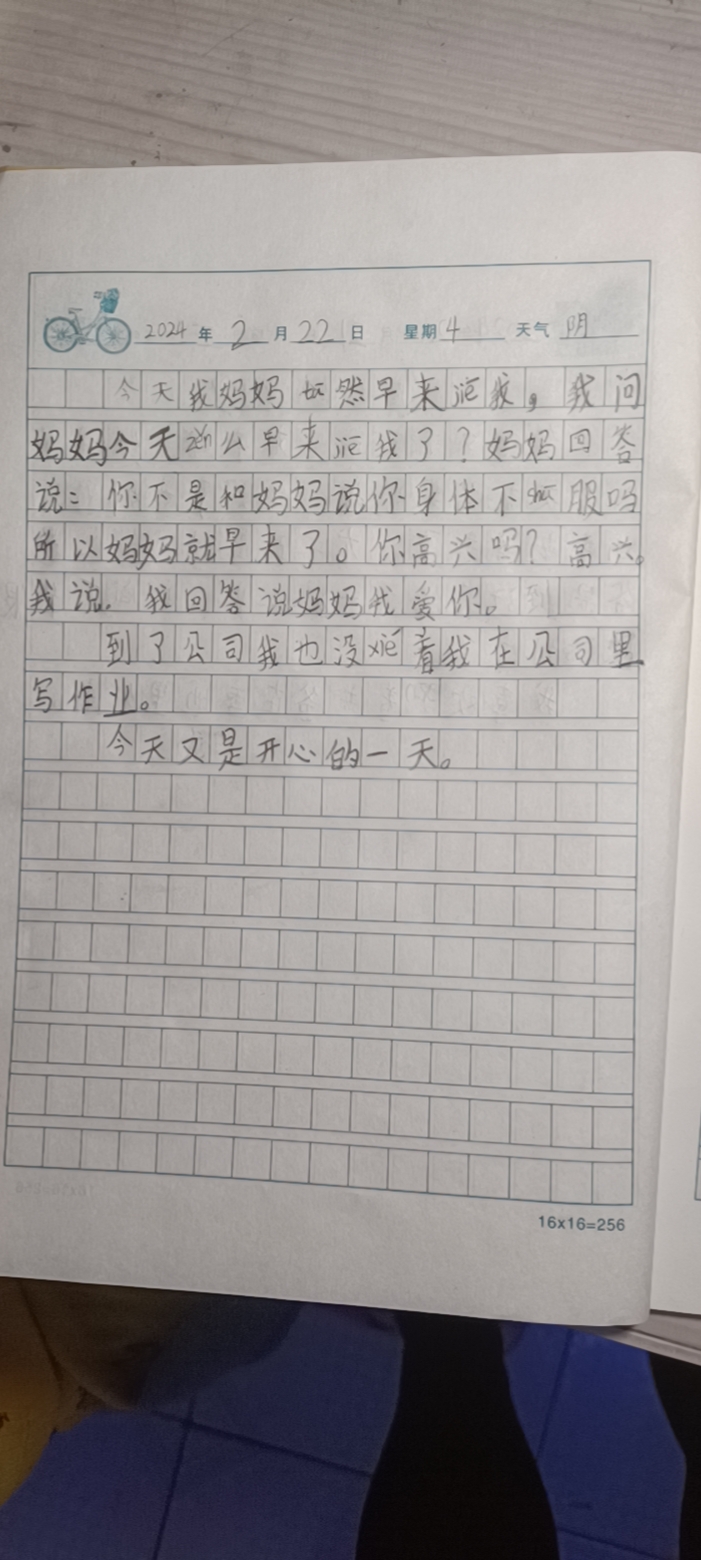 2024 年 2 月 22 日 星期 4 天气 阴
今天我妈妈 然早来 我，我问
妈妈今天zěn么早来 我了？妈妈回答
说：你不是和妈妈说你身体不shū服吗
所以妈妈就早来了。你高兴吗？高兴。
我说．我回答说妈妈我爱你。
到了公司我也没xián着我在公司里
写作业。
今天又是开心的一天。
16x16=256